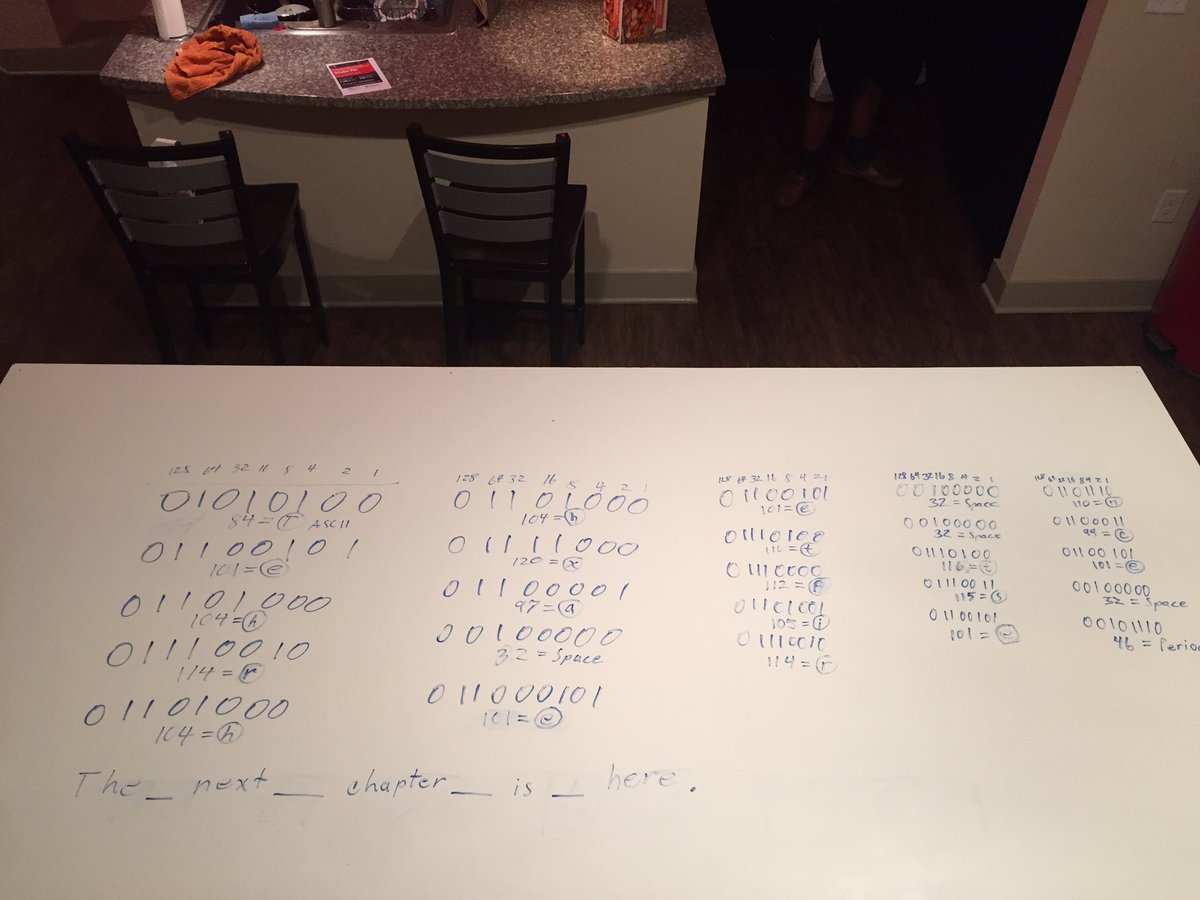 128 64 32 16 8 4 2 1
01010100
84 = T ASCII
01100101
101 = e
01101000
104 = h
01110010
114 = r
01101000
104 = h
128 64 32 16 8 4 2 1
01101000
104 = h
01111000
120 = x
01100001
97 = a
00100000
32 = Space
011000101
101 = e
128 64 32 16 8 4 2 1
01100101
101 = e
01110100
116 = t
01110000
112 = p
01101001
105 = i
01110010
114 = r
128 64 32 16 8 4 2 1
00100000
32 = Space
00100000
32 = Space
01110100
116 = t
01110011
115 = s
01100101
101 = e
128 64 32 16 8 4 2 1
01101110
110 = n
01100011
99 = c
01100101
101 = e
00100000
32 = Space
00101110
46 = Period
The_ next __ chapter __ is _ here.